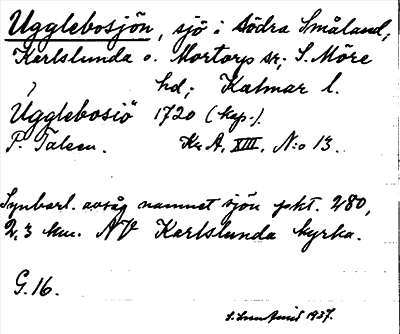 Ugglebosjön, sjö i södra Småland,
Karlslunda o. Mortorp sr; S. Möre
hd; Kalmar l.
Ugglebosiö 1720 (kap.)
P. Kr. A, XIII, N:o 13.
Synbarl. avsåg namnet sjön pkt. 280,
2,3 km. NV Karlslunda kyrka.
G. 16.
1937.